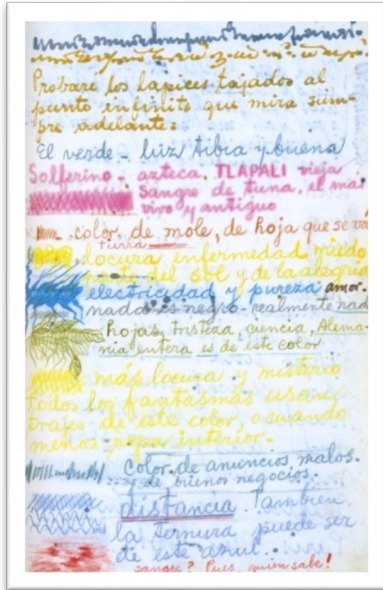 Probaré los lápices tajados al
punto infinito que mira siem-
pre adelante:
El verde - luz tibia y buena
Solferino - azteca. TLAPALI vieja
sangre de tuna, el más
vivo y antiguo
color de mole, de hoja que se va
tierra
locura enfermedad miedo
parte del sol y de la alegría
electricidad y pureza amor.
nada es negro - realmente nada
hojas, tristeza, ciencia, Alema-
nia entera es de este color
más locura y misterio
todos los fantasmas usan
trajes de este color, o cuando
menos ropa interior.
color de anuncios malos.
y de buenos negocios.
distancia. Tambien
la ternura puede ser
de este azul.
sangre? Pues, quien sabe!